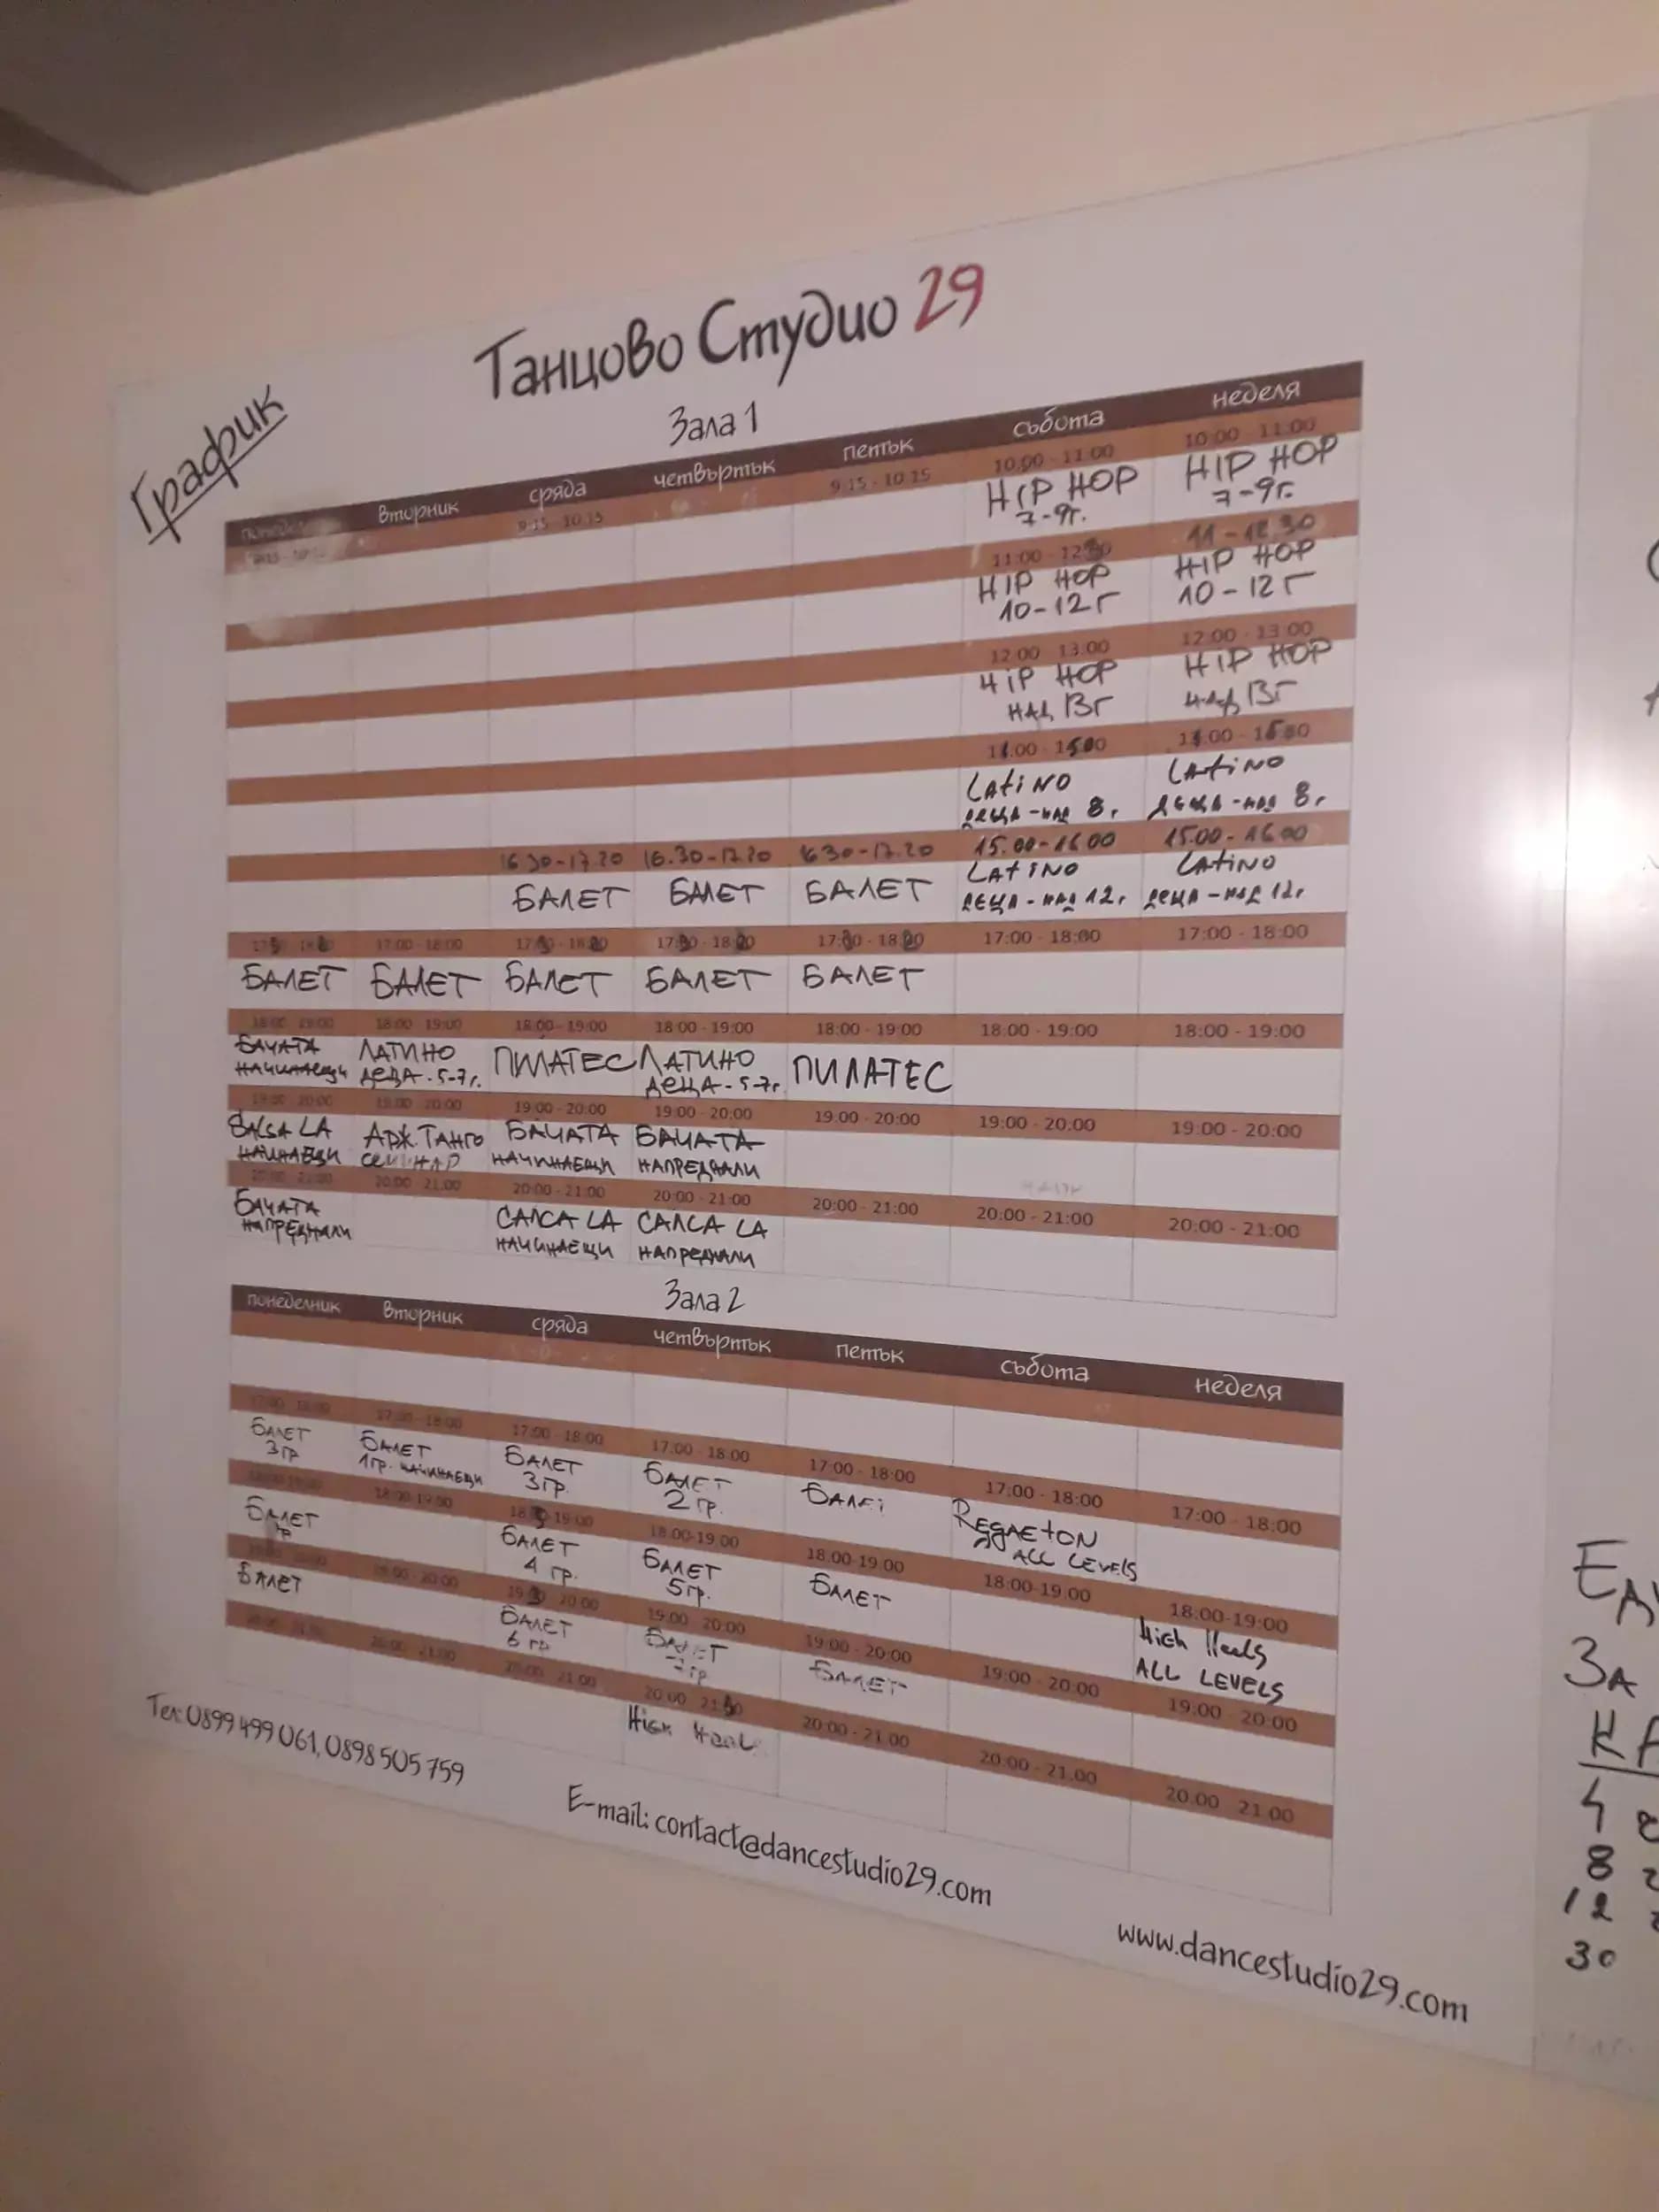 График
Танцово Студио 29
Зала 1
вторник сряда четвъртък петък събота неделя
9:15 - 10:15 9:15 - 10:15 10:00 - 11:00 10:00 - 11:00
HIP HOP HIP HOP
7-9г. 7-9г.
11:00 - 11 - 12.30
HIP HOP HIP HOP
10-12г 10-12г
12:00 13:00 12:00 - 13:00
HIP HOP HIP HOP
НАД 13г НАД 13г
LATINO LATINO
ДЕЦА - НАД 8г. ДЕЦА - НАД 8г.
16 30-17.20 16.30-17.20 16 30-17.20 15.00-16 00 15.00-16 00
БАЛЕТ БАЛЕТ БАЛЕТ LATINO LATINO
ДЕЦА - НАД 12г ДЕЦА - НАД 12г
17:00 - 18:00 17:00 - 18:00 17:00 - 18:00
БАЛЕТ БАЛЕТ БАЛЕТ БАЛЕТ БАЛЕТ
18:00 19:00 18:00 19:00 18:00 - 19:00 18:00 - 19:00 18:00 - 19:00 18:00 - 19:00 18:00 - 19:00
БАЧАТА ЛАТИНО ПИЛАТЕС ЛАТИНО ПИЛАТЕС
НАЧИНАЕЩИ ДЕЦА - 5-7г. ДЕЦА - 5-7г.
19:00 20:00 19:00 20:00 19:00 - 20:00 19:00 - 20:00 19:00 - 20:00 19:00 - 20:00 19:00 - 20:00
SALSA LA АРЖ. ТАНГО БАЧАТА БАЧАТА
НАЧИНАЕЩИ СЕМИНАР НАЧИНАЕЩИ НАПРЕДНАЛИ
20:00 21:00 20:00 - 21:00 20:00 - 21:00 20:00 - 21:00 20:00 - 21:00 20:00 - 21:00
БАЧАТА САЛСА LA САЛСА LA
НАПРЕДНАЛИ НАЧИНАЕЩИ НАПРЕДНАЛИ
Зала 2
понеделник вторник сряда четвъртък петък събота неделя
17:00 - 18:00 17:00 - 18:00 17:00 - 18:00 17:00 - 18:00 17:00 - 18:00 17:00 - 18:00
БАЛЕТ БАЛЕТ БАЛЕТ БАЛЕТ БАЛЕТ REGGAETON
3гр 1гр. НАЧИНАЕЩИ 3гр. 2 гр. ALL LEVELS
18:00-19:00 18:00-19:00 18:00-19:00 18:00-19:00 18:00-19:00
БАЛЕТ БАЛЕТ БАЛЕТ БАЛЕТ High Heels
4 гр. 5гр. ALL LEVELS
19:00 - 20:00 19:00 20:00 19:00 - 20:00 19:00 - 20:00 19:00 - 20:00
БАЛЕТ БАЛЕТ БАЛЕТ БАЛЕТ
6 гр 7гр
20:00 21:00 20:00 21:00 20:00 - 21:00 20:00 - 21:00 20:00 21:00
High Heel
Тел: 0899 499 061, 0898 505 759
E-mail: contact@dancestudio29.com
www.dancestudio29.com
ЗА
4
8
12
30